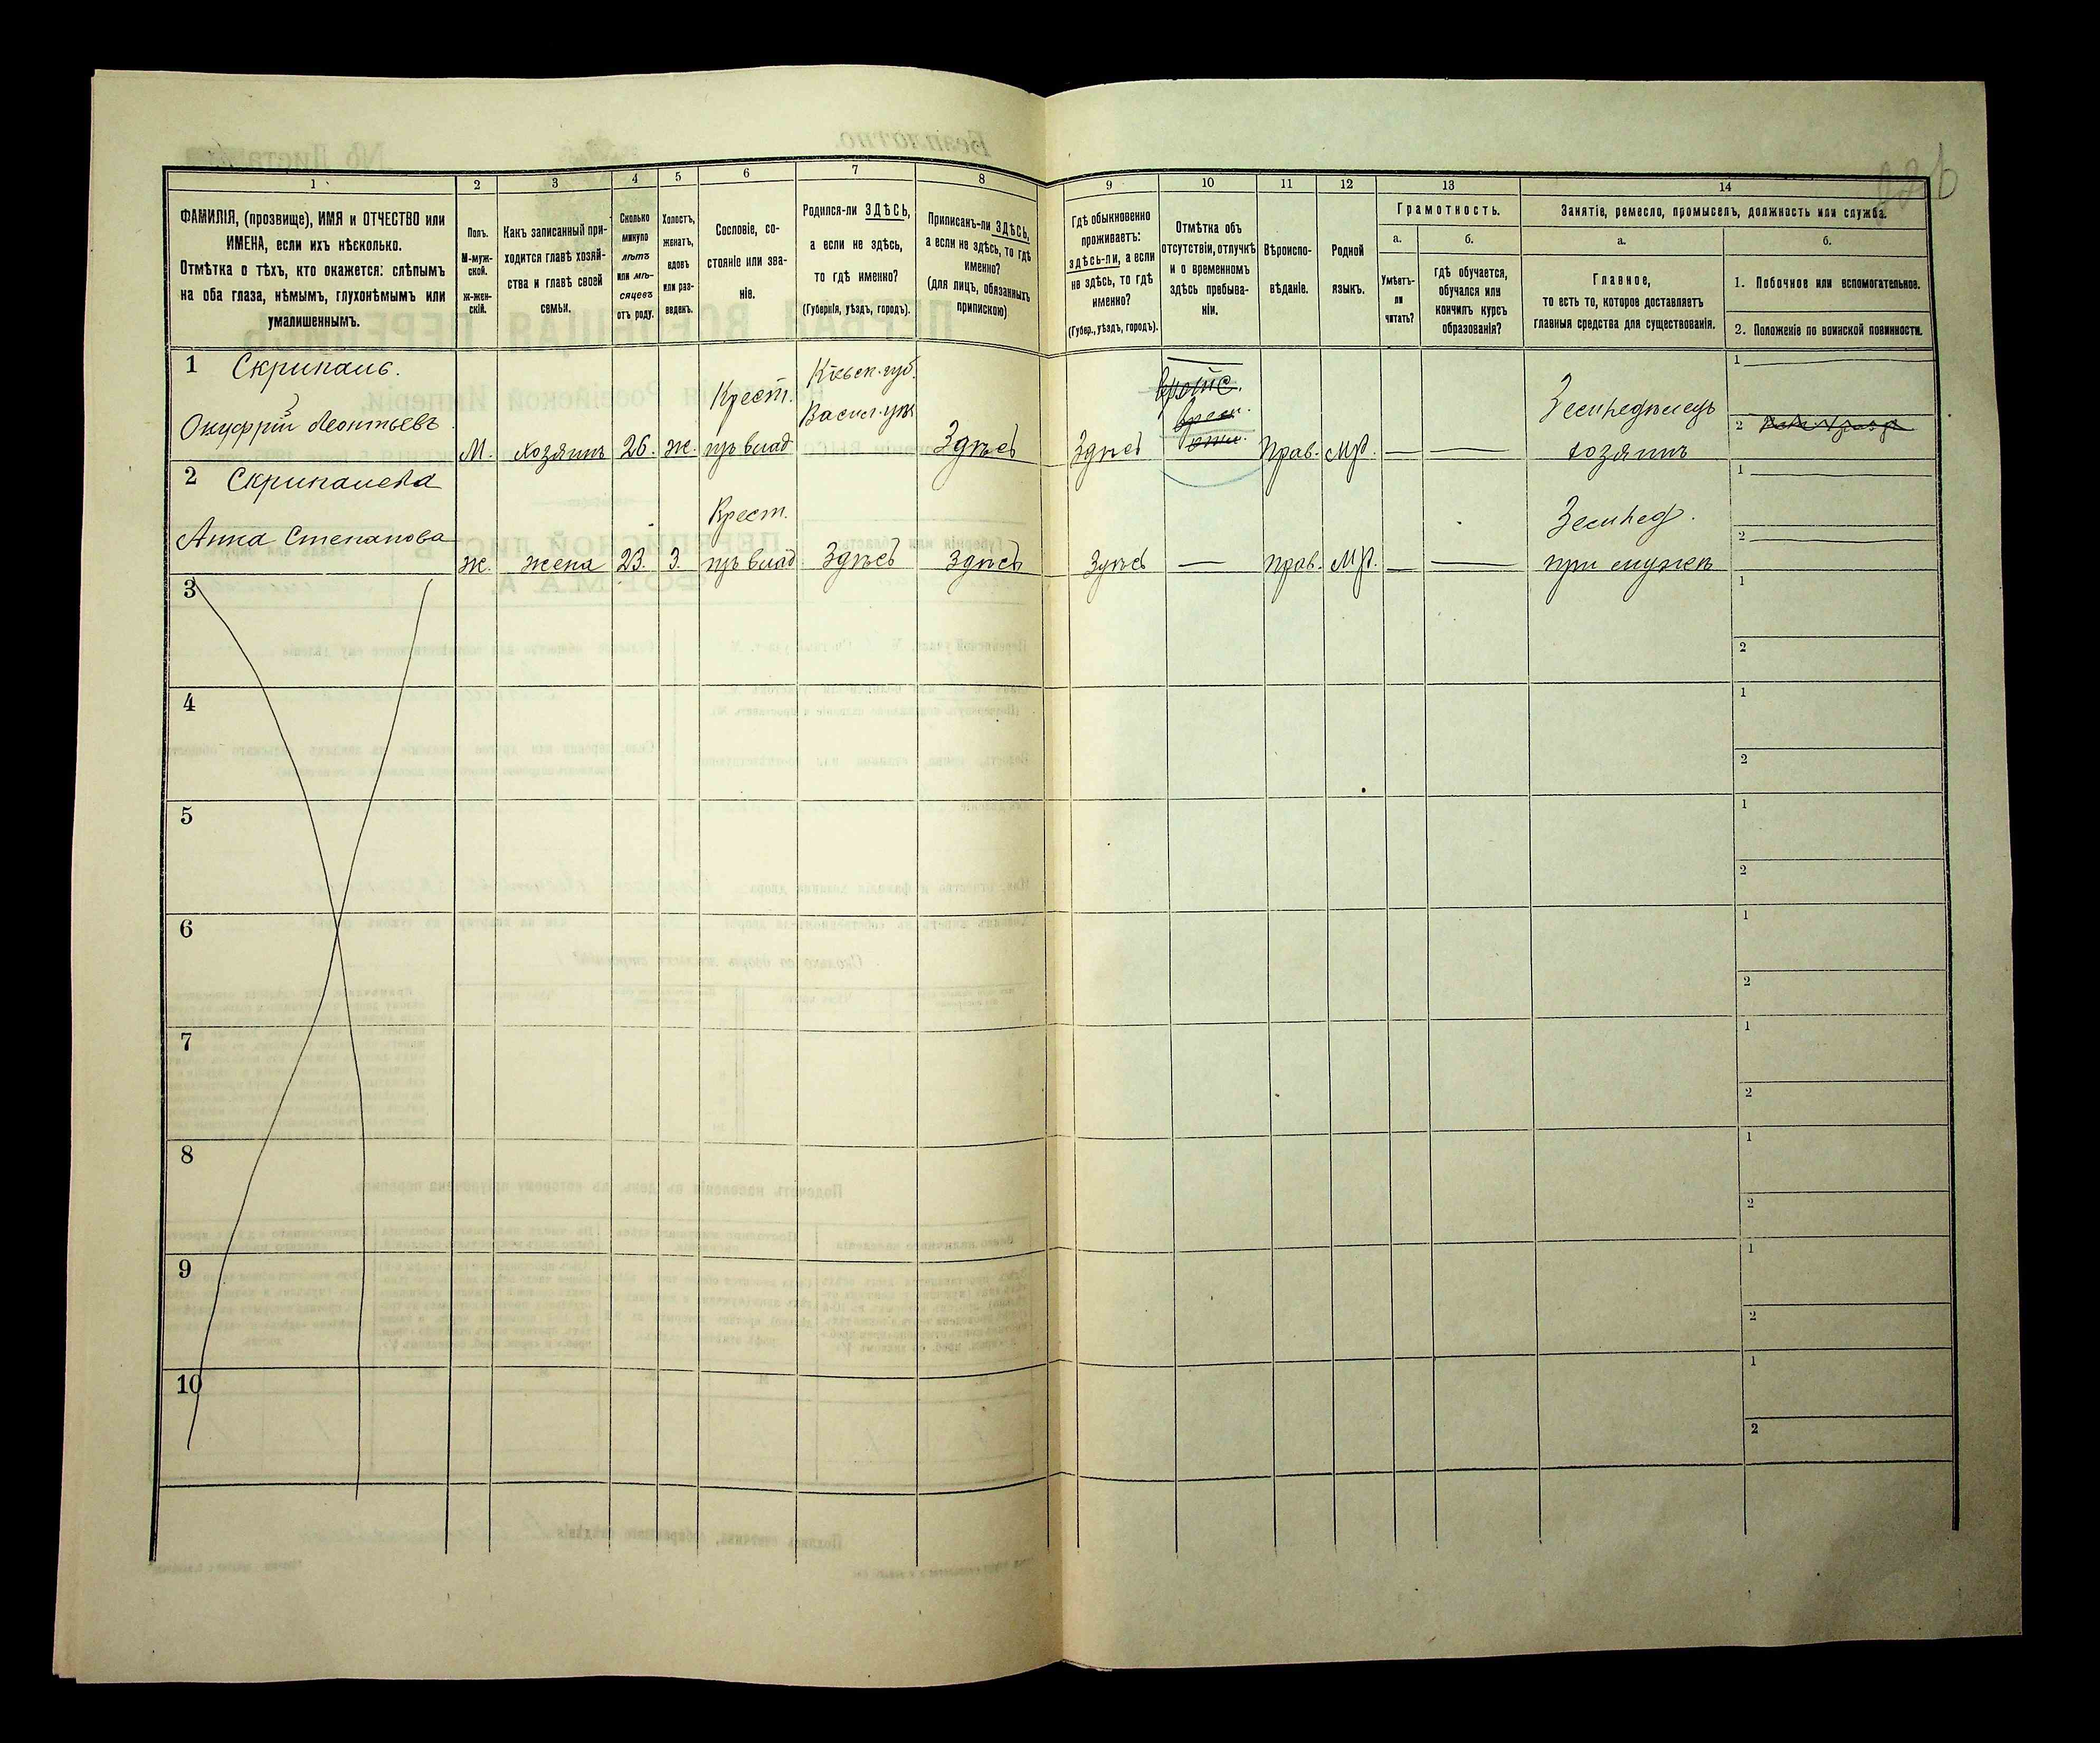 1 2 3 4 5 6 7 8 9 10 11 12 13 14
ФАМИЛІЯ, (прозвище), ИМЯ и ОТЧЕСТВО или
ИМЕНА, если ихъ нѣсколько.
Отмѣтка о тѣхъ, кто окажется: слѣпымъ
на оба глаза, нѣмымъ, глухонѣмымъ или
умалишеннымъ.
Полъ.
М-муж-
ской.
ж-жен-
скій.
Какъ записанный при-
ходится главѣ хозяй-
ства и главѣ своей
семьи.
Сколько
минуло
лѣтъ
или мѣ-
сяцевъ
отъ роду.
Холостъ,
женатъ,
вдовъ
или раз-
веденъ.
Сословіе, со-
стояніе или зва-
ніе.
Родился-ли ЗДѢСЬ,
а если не здѣсь,
то гдѣ именно?
(Губернія, уѣздъ, городъ).
Приписанъ-ли ЗДѢСЬ,
а если не здѣсь, то гдѣ
именно?
(для лицъ, обязанныхъ
припискою)
Гдѣ обыкновенно
проживаетъ:
здѣсь-ли, а если
не здѣсь, то гдѣ
именно?
(Губер., уѣздъ, городъ).
Отмѣтка объ
отсутствіи, отлучкѣ
и о временномъ
здѣсь пребыва-
ніи.
Вѣроиспо-
вѣданіе.
Родной
языкъ.
Грамотность.
а.
Умѣетъ-
ли
читать?
б.
гдѣ обучается,
обучался или
кончилъ курсъ
образованія?
Занятіе, ремесло, промыселъ, должность или служба.
а.
Главное,
то есть то, которое доставляетъ
главныя средства для существованія.
б.
1. Побочное или вспомогательное.
2. Положеніе по воинской повинности.
1 Скрипаль.
Онуфрій Леонтьевъ
М. хозяинъ 26. ж.
Крест.
пр влад
Кіевск. губ.
Васил. уѣз
Здѣсь
Здѣсь
Прав. Мр. — —
Земледѣлецъ
хозяинъ
1
2
2 Скрипалева
Анна Степанова
ж. жена 23. З.
Крест.
пр влад
Здѣсь Здѣсь
Здѣсь — Прав. Мр. — —
Землед.
при мужѣ
1
2
3
1
2
4
1
2
5
1
2
6
1
2
7
1
2
8
1
2
9
1
2
10
1
2